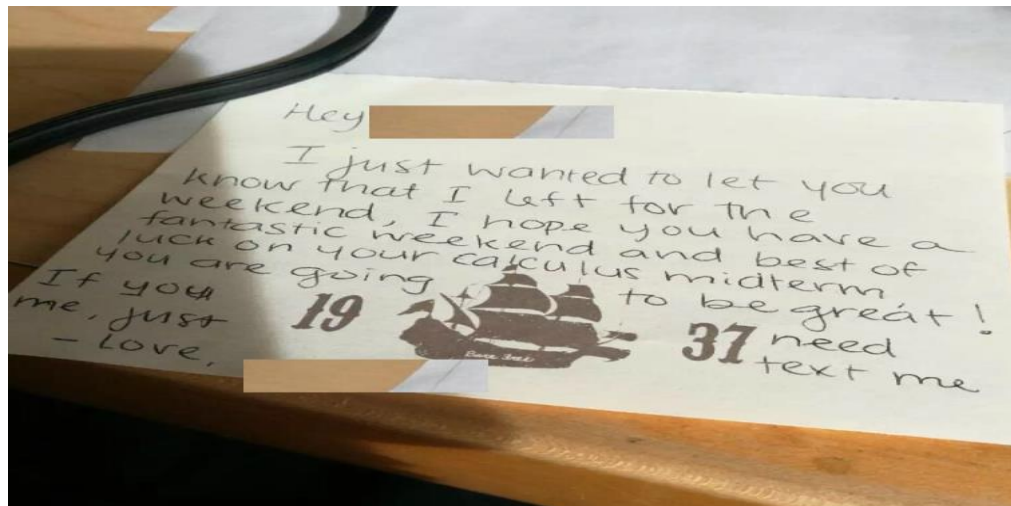 Hey
I just wanted to let you
know that I left for the
weekend, I hope you have a
fantastic weekend and best of
luck on your calculus midterm,
you are going to be great!
If you need
me, just text me
- Love,
19 37